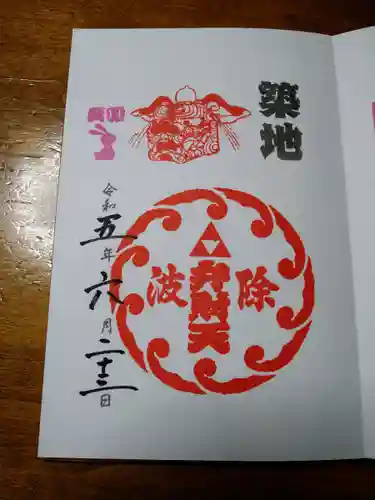 築地
除
弁財天
波
令和五年六月二十三日